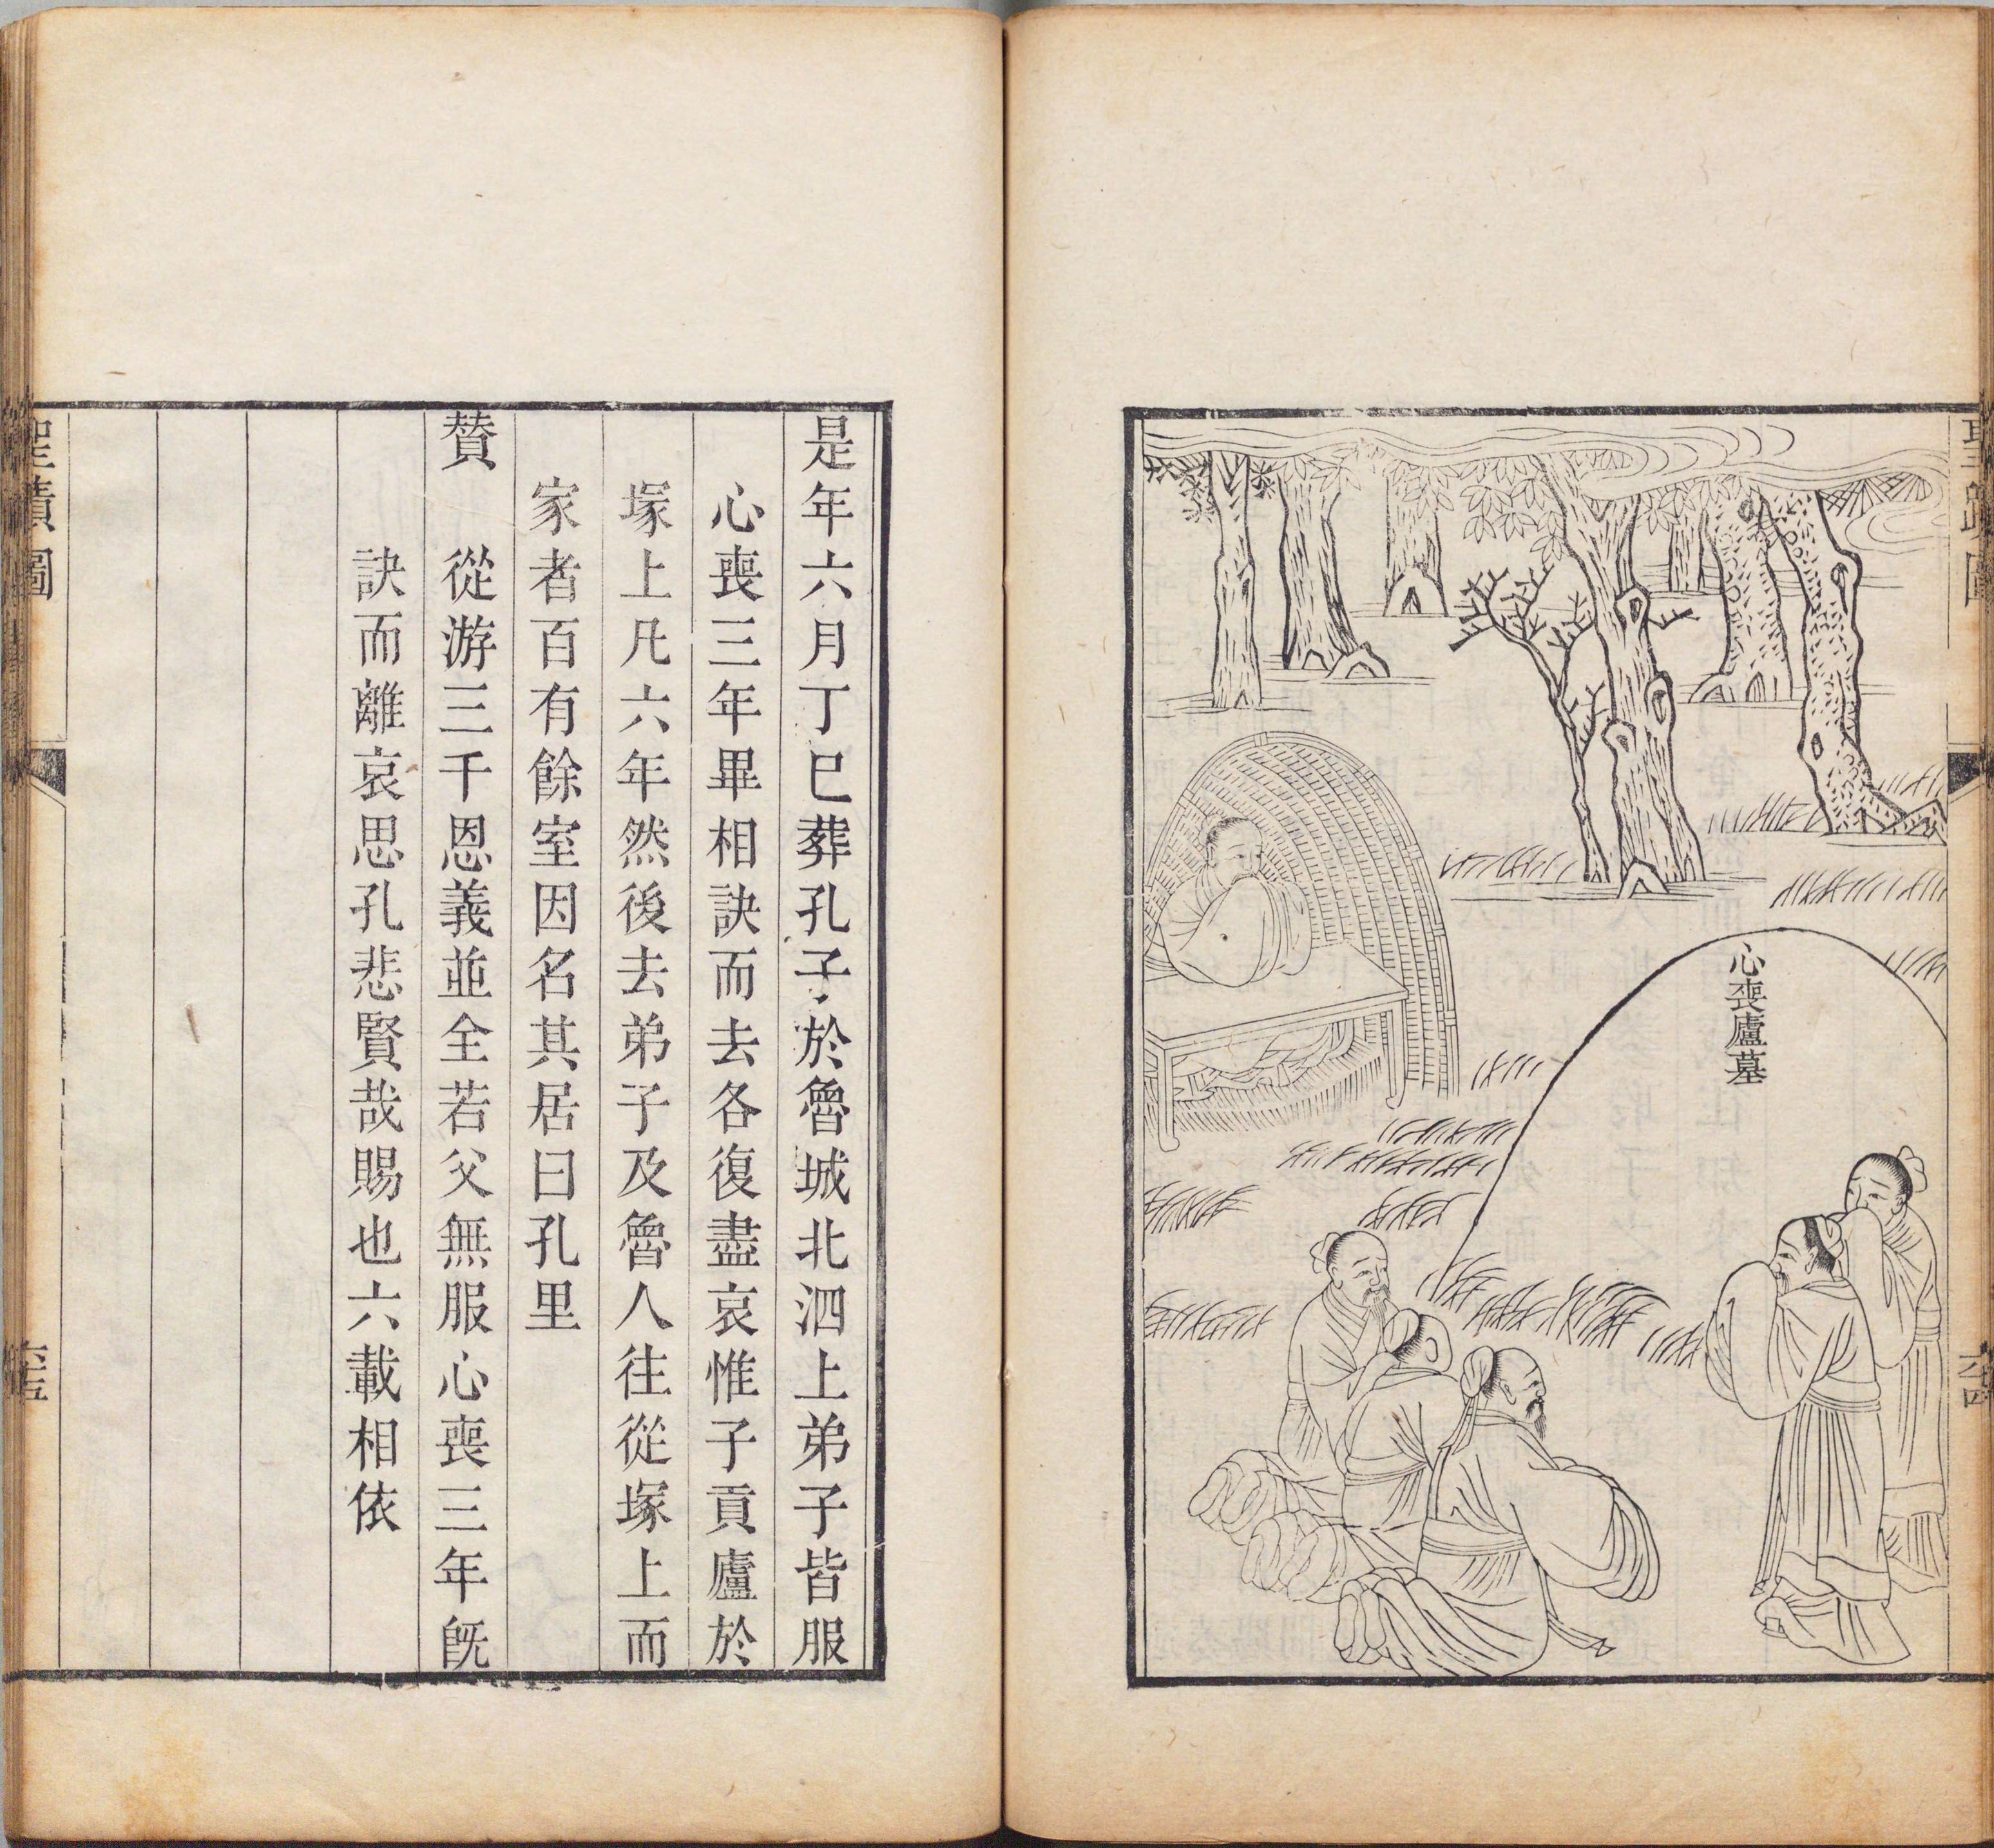 心喪廬墓
是年六月丁巳葬孔子於魯城北泗上弟子皆服
心喪三年畢相訣而去各復盡哀惟子貢廬於
塚上凡六年然後去弟子及魯人往從塚上而
家者百有餘室因名其居曰孔里
贊
從游三千恩義並全若父無服心喪三年旣
訣而離哀思孔悲賢哉賜也六載相依
聖蹟圖